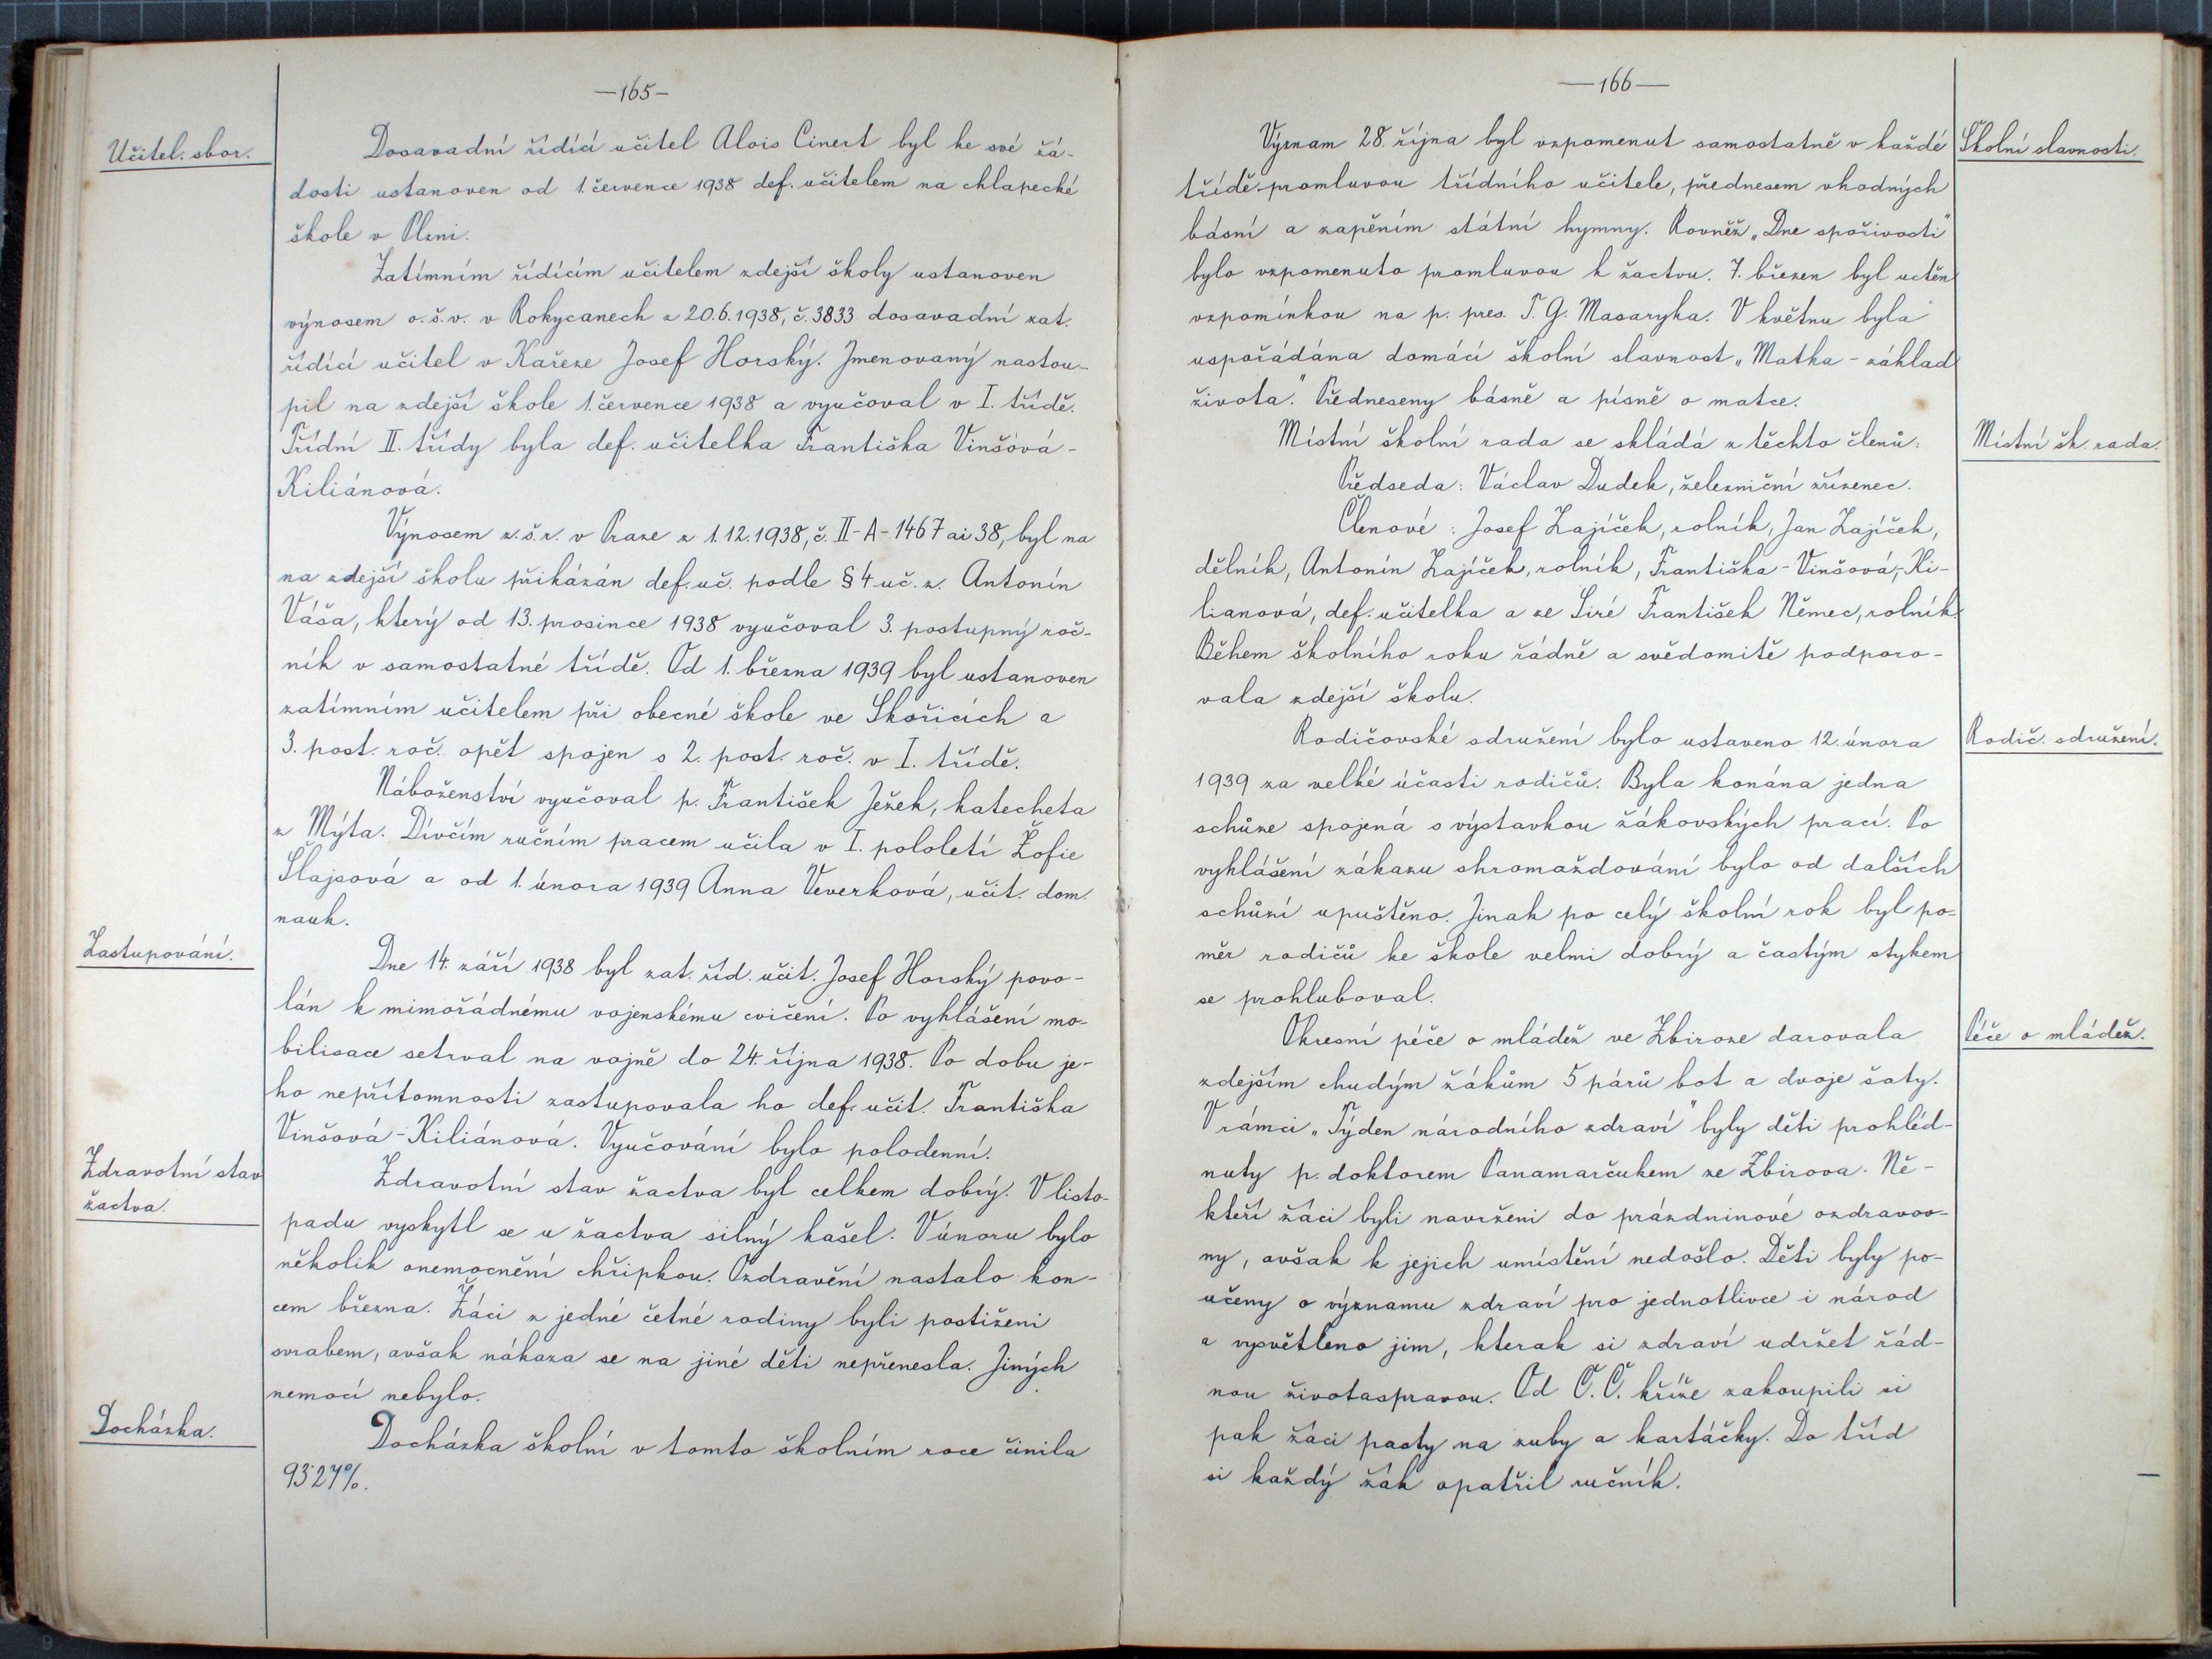 —165—
Učitel. sbor.
Dosavadní řídící učitel Alois Cinert byl ke své žá-
dosti ustanoven od 1. července 1938 def. učitelem na chlapecké
škole v Plzni.
Zatímním řídícím učitelem zdejší školy ustanoven
výnosem o.š.v. v Rokycanech z 20.6.1938, č. 3833 dosavadní zat.
řídící učitel v Kařeze Josef Horský. Jmenovaný nastou-
pil na zdejší škole 1. července 1938 a vyučoval v I. třídě.
Třídní II. třídy byla def. učitelka Františka Vinšová-
Kiliánová.
Výnosem z.š.r. v Praze z 1.12.1938, č. II-A-1467 ai 38, byl na
na zdejší školu přikázán def. uč. podle § 4 uč. z. Antonín
Váša, který od 13. prosince 1938 vyučoval 3. postupný roč-
ník v samostatné třídě. Od 1. března 1939 byl ustanoven
zatímním učitelem při obecné škole ve Skořicích a
3. post. roč. opět spojen s 2. post. roč. v I. třídě.
Náboženství vyučoval p. František Ježek, katecheta
z Mýta. Dívčím ručním pracem učila v I. pololetí Žofie
Šlajsová a od 1. února 1939 Anna Veverková, učit. dom.
nauk.
Zastupování.
Dne 14. září 1938 byl zat. říd. učit. Josef Horský povo-
lán k mimořádnému vojenskému cvičení. Po vyhlášení mo-
bilisace setrval na vojně do 24. října 1938. Po dobu je-
ho nepřítomnosti zastupovala ho def. učit. Františka
Vinšová-Kiliánová. Vyučování bylo polodenní.
Zdravotní stav
žactva.
Zdravotní stav žactva byl celkem dobrý. V listo-
padu vyskytl se u žactva silný kašel. V únoru bylo
několik onemocnění chřipkou. Ozdravění nastalo kon-
cem března. Žáci z jedné četné rodiny byli postiženi
svrabem, avšak nákaza se na jiné děti nepřenesla. Jiných
nemocí nebylo.
Docházka.
Docházka školní v tomto školním roce činila
93˙27%.
—166—
Školní slavnosti.
Význam 28. října byl vzpomenut samostatně v každé
třídě promluvou třídního učitele, přednesem vhodných
básní a zapěním státní hymny. Rovněž „Dne spořivosti"
bylo vzpomenuto promluvou k žactvu. 7. březen byl uctěn
vzpomínkou na p. pres. T. G. Masaryka. V květnu byla
uspořádána domácí školní slavnost „Matka - základ
života." Předneseny básně a písně o matce.
Místní šk. rada.
Místní školní rada se skládá z těchto členů:
Předseda: Václav Dudek, železniční zřízenec.
Členové: Josef Zajíček, rolník, Jan Zajíček,
dělník, Antonín Zajíček, rolník, Františka - Vinšová,- Ki-
lianová, def. učitelka a ze Siré František Němec, rolník.
Během školního roku řádně a svědomitě podporo-
vala zdejší školu.
Rodič. sdružení.
Rodičovské sdružení bylo ustaveno 12. února
1939 za velké účasti rodičů. Byla konána jedna
schůze spojená s výstavkou žákovských prací. Po
vyhlášení zákazu shromažďování bylo od dalších
schůzí upuštěno. Jinak po celý školní rok byl po-
měr rodičů ke škole velmi dobrý a častým stykem
se prohluboval.
Péče o mládež.
Okresní péče o mládež ve Zbiroze darovala
zdejším chudým žákům 5 párů bot a dvoje šaty.
V rámci „Týden národního zdraví" byly děti prohléd-
nuty p. doktorem Panamarčukem ze Zbirova. Ně-
kteří žáci byli navrženi do prázdninové ozdravov-
ny, avšak k jejich umístění nedošlo. Děti byly po-
učeny o významu zdraví pro jednotlivce i národ
a vysvětleno jim, kterak si zdraví udržet řád-
nou životasprávou. Od Č. Č. kříže zakoupili si
pak žáci pasty na zuby a kartáčky. Do tříd
si každý žák opatřil ručník.